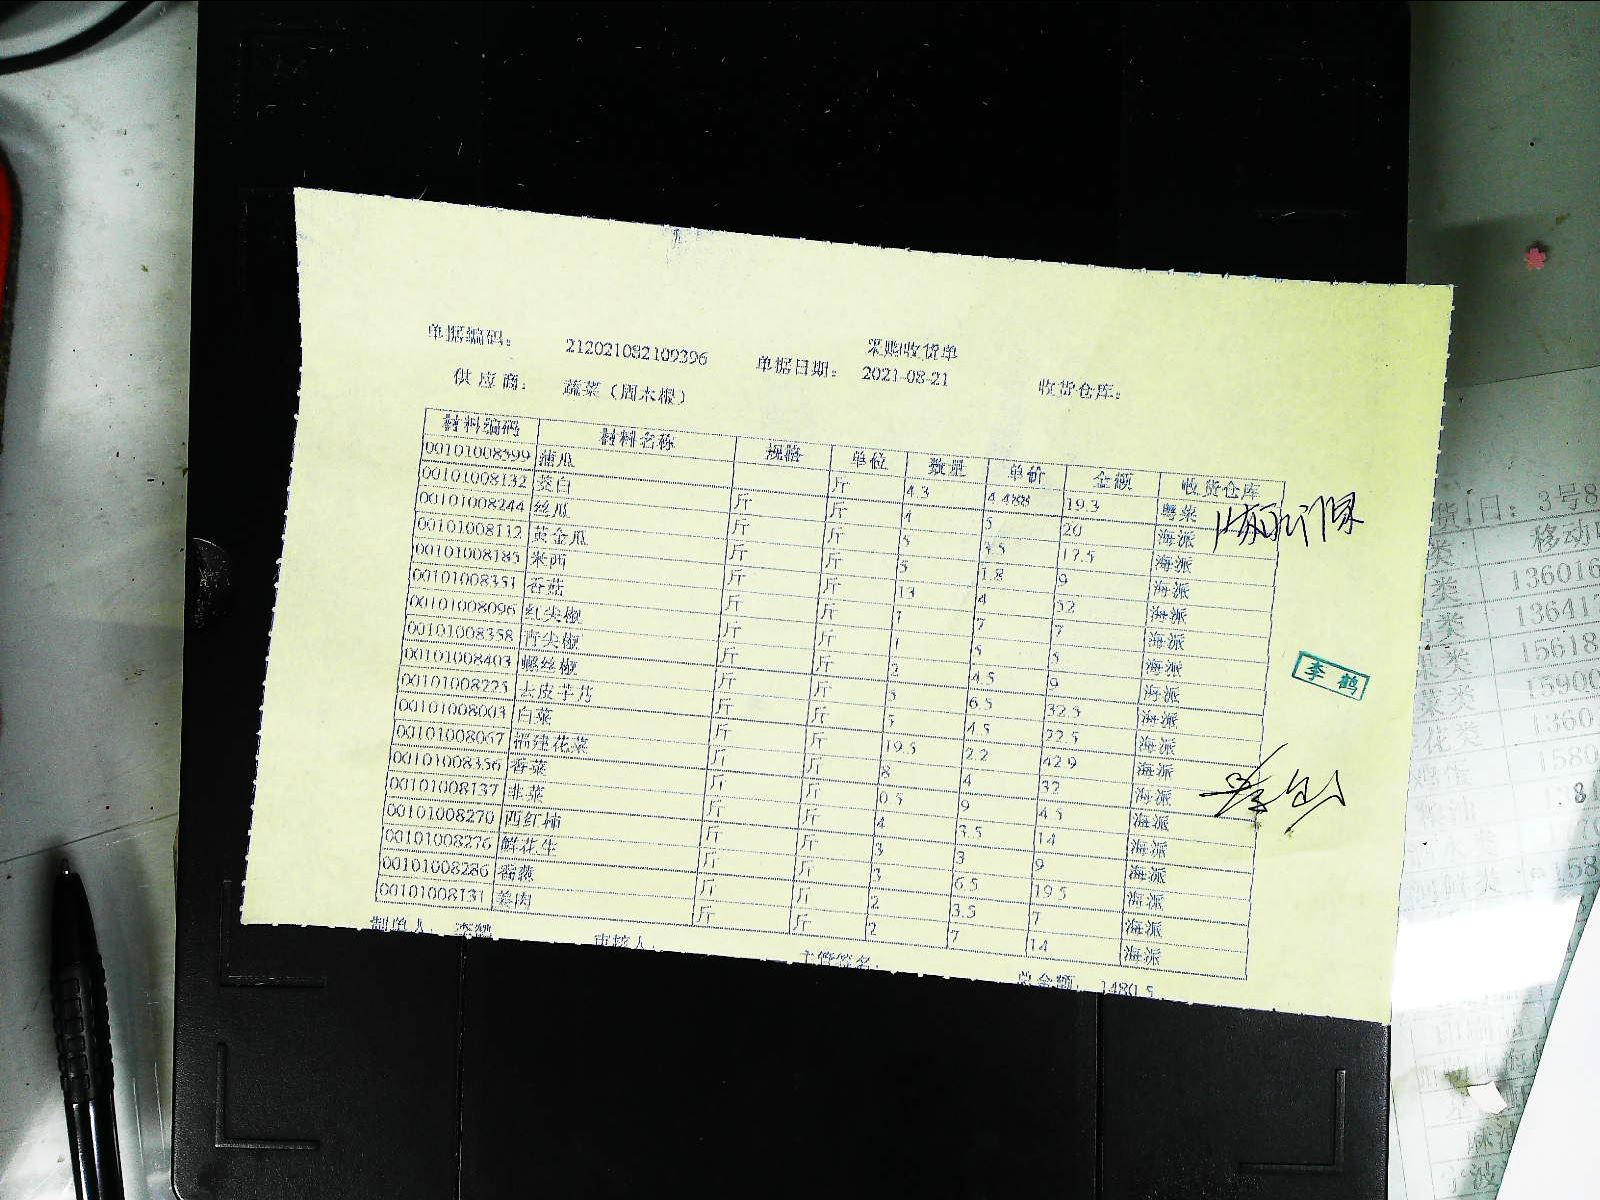 采购收货单
单据编码： 212021082109396 单据日期： 2021-08-21 收货仓库：
供应商： 蔬菜（周木根）
材料编码 材料名称 规格 单位 数量 单价 金额 收货仓库
00101008399 蒲瓜 斤 4.3 4.4888 19.3 粤菜
00101008132 茭白 斤 斤 4 5 20 海派
00101008244 丝瓜 斤 斤 5 3.5 17.5 海派
00101008112 黄金瓜 斤 斤 5 1.8 9 海派
00101008185 米西 斤 斤 13 4 52 海派
00101008351 香菇 斤 斤 1 7 7 海派
00101008096 红尖椒 斤 斤 1 5 5 海派
00101008358 青尖椒 斤 斤 2 4.5 9 海派
00101008403 螺丝椒 斤 斤 5 6.5 32.5 海派
00101008225 去皮芋艿 斤 斤 5 4.5 22.5 海派
00101008003 白菜 斤 斤 19.5 2.2 42.9 海派
00101008067 福建花菜 斤 斤 8 4 32 海派
00101008356 香菜 斤 斤 0.5 9 4.5 海派
00101008137 韭菜 斤 斤 4 3.5 14 海派
00101008270 西红柿 斤 斤 3 3 9 海派
00101008276 鲜花生 斤 斤 3 6.5 19.5 海派
00101008286 斤 斤 2 3.5 7 海派
00101008131 姜肉 斤 斤 2 7 14 海派
制单人： 李鹤 审核人： 主管签名： 总金额： 1480.5
李鹤